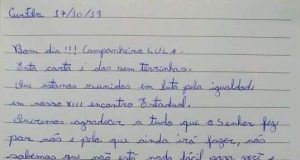 Curitiba 17/10/19
Bom dia!!! Companheiro LULA.
Esta carta é dos sem terrinhas.
Que estamos reunidos em luta pela igualdade
em nosso XIII encontro Estadual.
Queremos agradecer a tudo que o Senhor fez
por nós e pelo que ainda irá fazer, nós
sabemos que não está nada fácil para você e